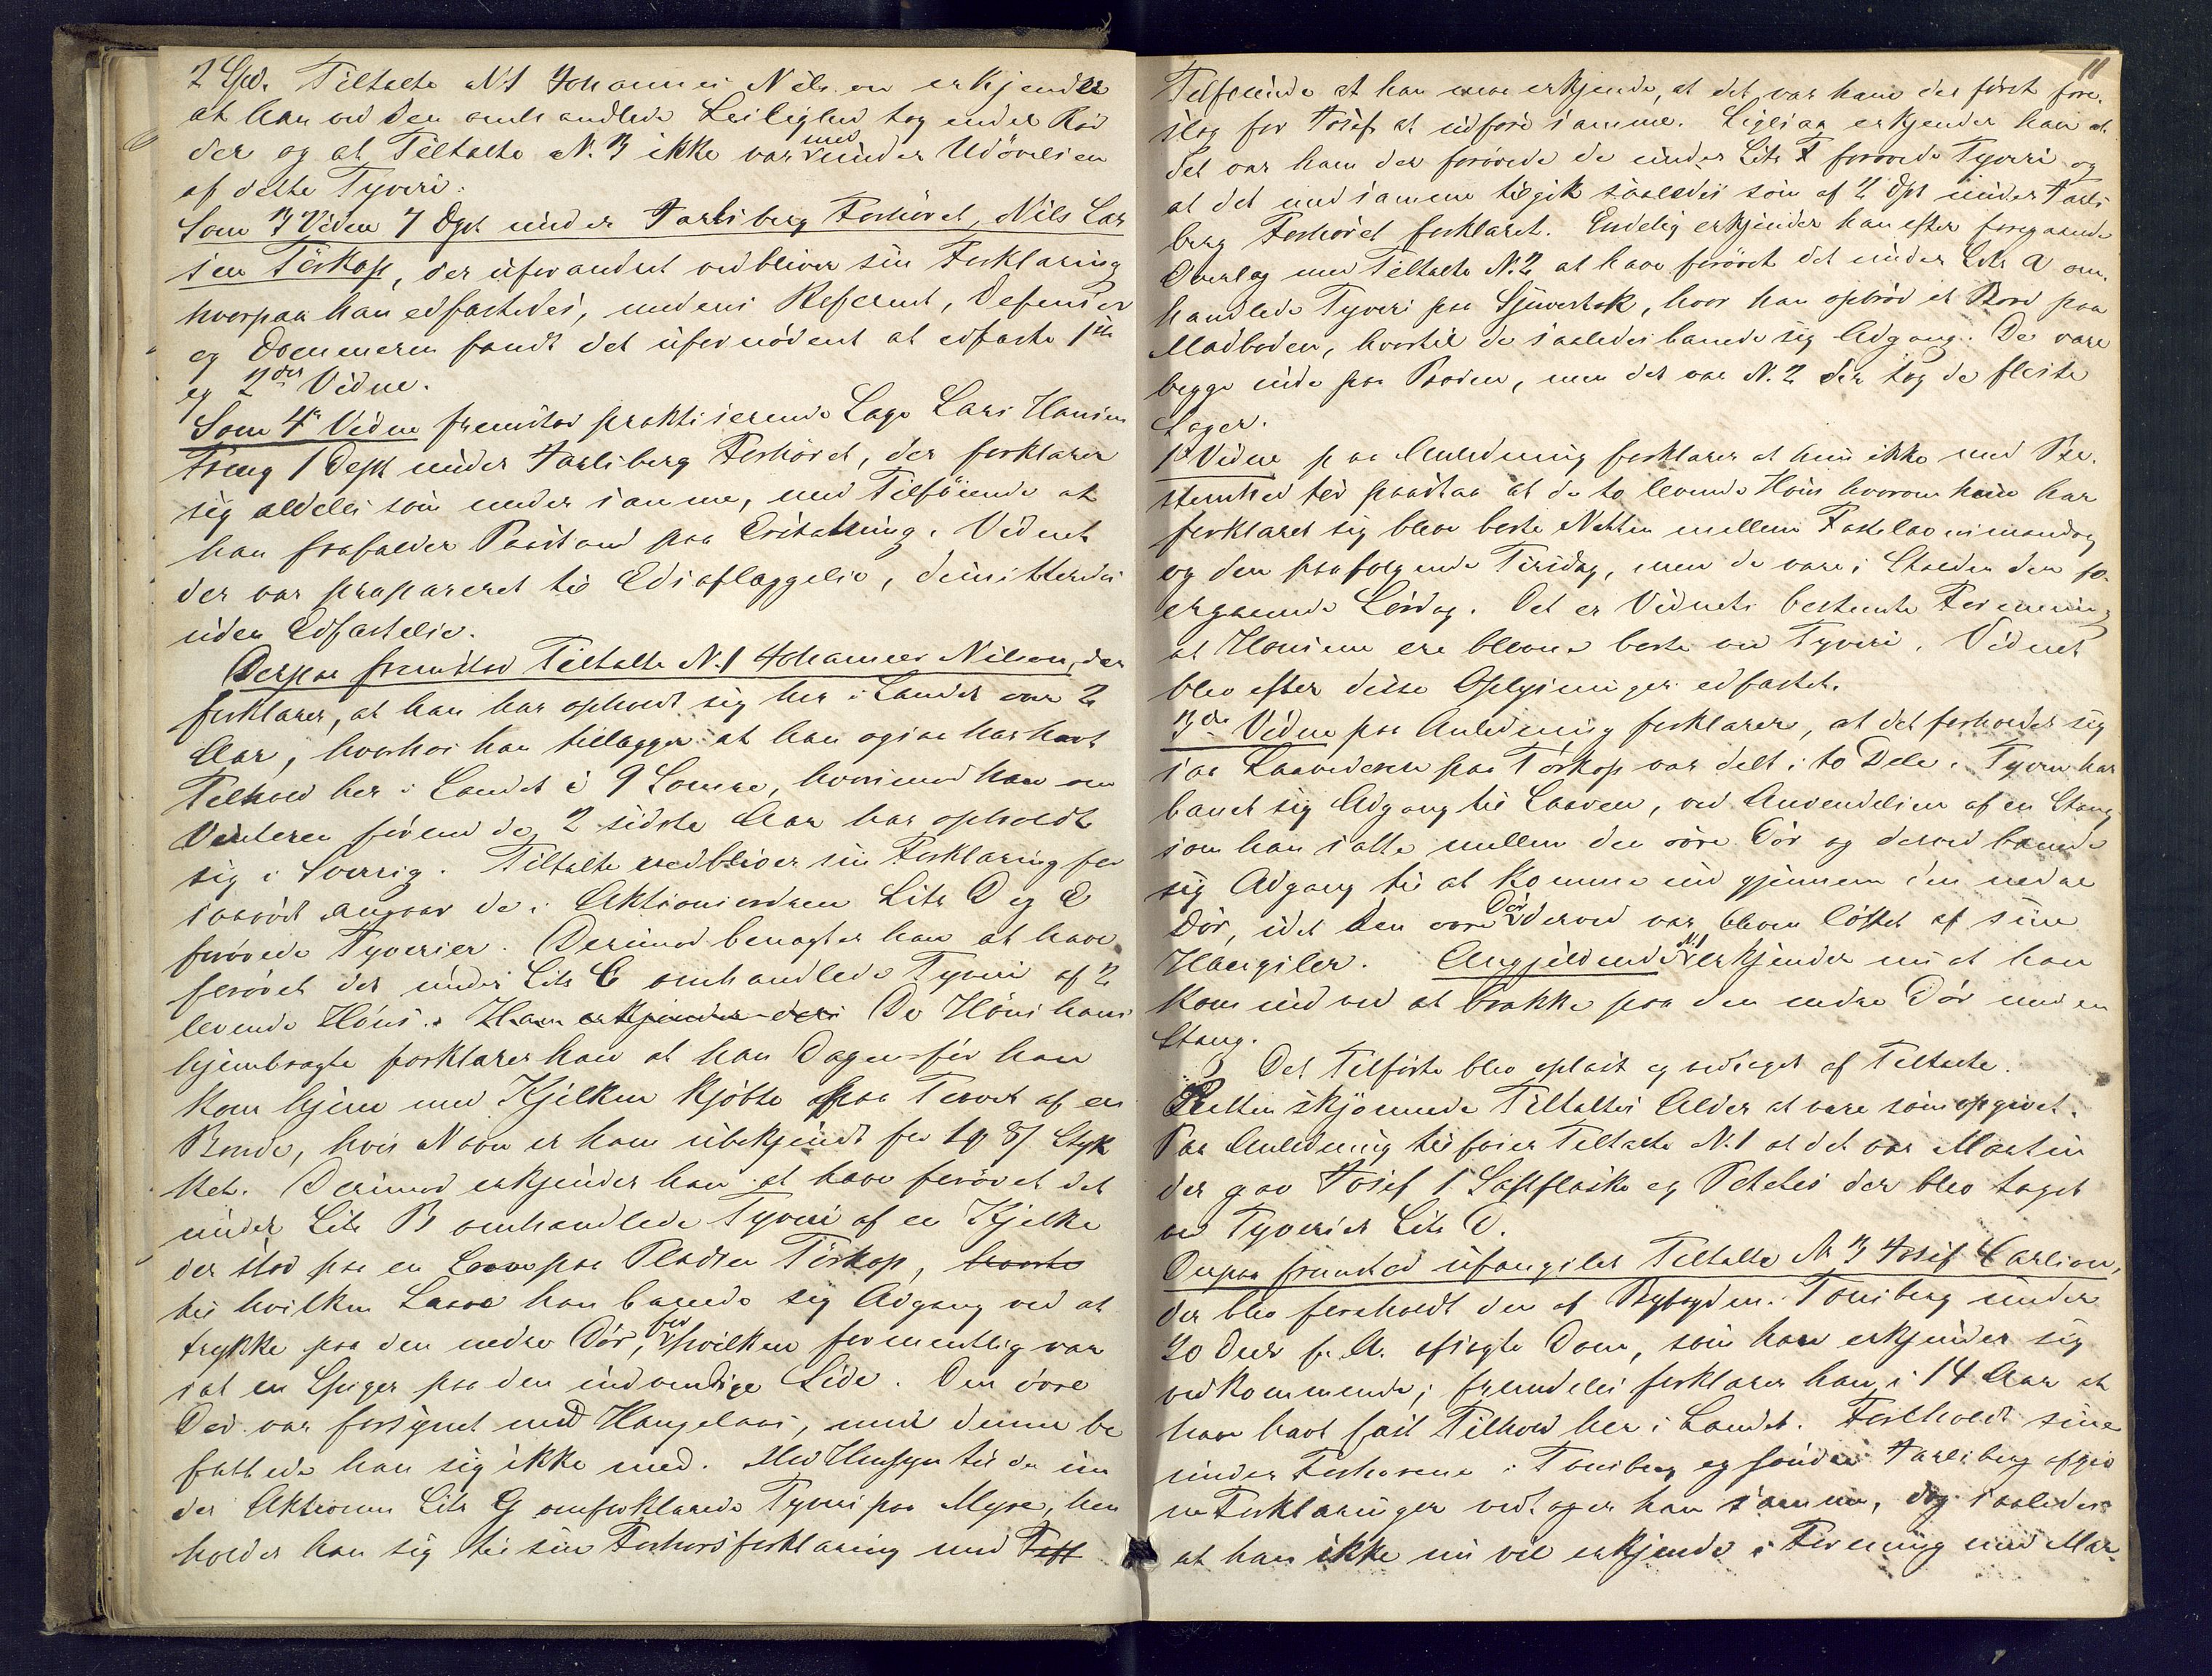 2 Spd. Tiltalte N1 Johannes Nilsson erkjender
at han ved den omhandlede Leilighed tog
der og at Tiltalte N. 3 ikke var med under Udövelsen
af dette Tyveri.
Som 3 Vidne 7 Dpt under Jarlsberg Forhöret, Nils Lar
sen Törkop, der uforandret vedbliver sin Forklaring
hvorpaa han edfæstedes, medens Referent, Defensor
og Dommeren fandt det ufornödent at edfæste 1ste
og 2det Vidne.
Som 4de Vidne fremstod praktiserende Læge Lars Hansen
1 Dept under Jarlsberg Forhöret, der forklarer
sig aldeles som under samme, med Tilföiende at
han frafalder Paastand paa Erstatning. Vidnet
der var præpareret til Edsaflæggelse, dimitteredes
uden Edfæstelse.
Derpaa fremstod Tiltalte N. 1 Johannes Nilson, der
forklarer, at han har opholdt sig her i Landet over 2
Aar, hvorhos han tillægger at han ogsaa har havt
Tilhold her i Landet i 9 Somre, hvorimod han om
Vinteren förend de 2 sidste Aar har opholdt
sig i Sverrig. Tiltalte vedbliver sin Forklaring for
saavidt angaar de i Aktionsordren Litr D og E
forövede Tyverier. Derimod benægter han at have
forövet det under Litr C omhandlede Tyveri af 2
levende Höns. Han erkjender der De Höns hans
hjembragte forklarer han at han Dagen för han
kom hjem med Kjelken kjöbte paa Torvet af en
Bonde, hvis Navn er ham ubekjendt for 1 8 Styk
ket. Derimod erkjender han at have forövet det
under Litr B omhandlede Tyveri af en Kjelke
der stod paa en Laave paa Pladsen Törkop,
til hvilken Laave han banede sig Adgang ved at
trykke paa den nedre Dör, for hvilken formentlig var
sat en Spiger paa den indvendige Side. Den övre
Dör var forsynet med Hængelaas, men denne be
fattede han sig ikke med. Med Hensyn til de un
der Aktionen Litr G omforklarede Tyveri paa Myre, hen
holder han sig til sin Forhörsforklaring med
11
Tilföiende at han maa erkjende, at det var ham der först fore
slog for Josef at udföre samme. Ligesaa erkjender han at
det var ham der forövede de under Litr F forövede Tyveri og
at det med samme tilgik saaledes som af 2 Dpt under Jarls
berg Forhöret forklaret. Endelig erkjender han efter foregaaende
Overlæg med Tiltalte N. 2 at have forövet det under Litr A om
handlede Tyveri paa Sjuvestok, hvor han opbröd et Bord paa
Madboden, hvortil de saaledes banede sig Adgang. De vare
begge inde paa Boden, men det var N. 2 der tog de fleste
Sager.
1ste Vidne paa Anledning forklarer at hun ikke med Be
stemthed tör paastaa at de to levende Höns hvorom hun har
forklaret sig bleve borte Natten mellem Fastelavnsmandag
og den paafölgende Tirsdag, men de vare i Stalden den fo
regaaende Löverdag. Det er Vidnets bestemte Formening
at Hönsene ere blevne borte ved Tyveri. Vidnet
blev efter disse Oplysninger edfæstet.
3die Vidne paa Anledning forklarer, at det forholder sig
saa Laavedören paa Törkop var delt i to Dele. Tyven har
banet sig Adgang til Laaven, ved Anvendelsen af en Stang
som han satte mellem den övre Dör og derved banede
sig Adgang til at komme ind gjennem den nedre
Dör, idet den övre Dör derved var bleven löftet af sine
Hængsler. Angjeldende N.1 erkjender nu at han
kom ind ved at brække paa den nedre Dör med en
Stang.
Det Tilförte blev oplæst og vedtaget af Tiltalte.
Retten skjönnede Tiltaltes Alder at være som opgivet.
Paa Anledning tilföier Tiltalte N. 1 at det var Martin
der gav Josef 1 Saftflaske og der blev taget
ved Tyveriet Litr D.
Derpaa fremstod ufængslet Tiltalte N. 3 Josef Carlson,
der blev foreholdt den af Byfogden i Tönsberg under
20 Decbr f. A. afsagte Dom, som han erkjender sig
vedkommende; fremdeles forklarer han i 14 Aar at
have havt fast Tilhold her i Landet. Foreholdt sine
under Forhörene i Tönsberg og söndre Jarlsberg afgiv
ne Forklaringer vedtager han samme, dog saaledes
at han ikke nu vil erkjende i Forening med Mar-